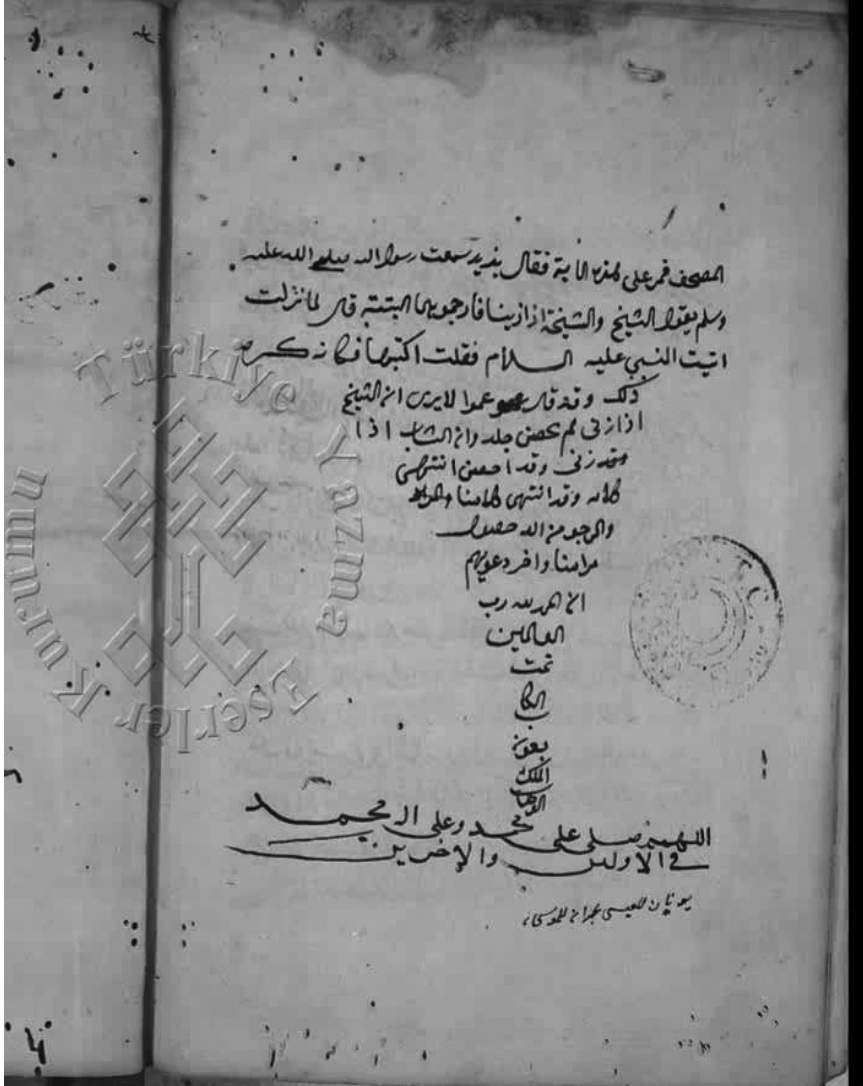 المصحف فمر على هذه الاية فقال يزيد سمعت رسول الله صلى الله عليه
وسلم يقول الشيخ والشيخة اذا زنيا فارجموهما البتة قال لما نزلت
اتيت النبي عليه السلام فقلت اكتبها فكانه كره
ذلك وقد قال عمر الا يرى ان الشيخ
اذا زنى لم يحصن جلد وان الشاب اذا
قد زنى وقد احصن انتهى
كلامه وقد انتهى كلامنا
والمرجو من الله حصول
مرامنا واخر دعويهم
ان الحمد لله رب
العالمين
تمت
الكتاب
بعون
الملك
الوهاب
اللهم صلى على محمد وعلى ال محمد
في الاولين والاخرين
Türkiye Yazma
Eserler Kurumu
T.C.